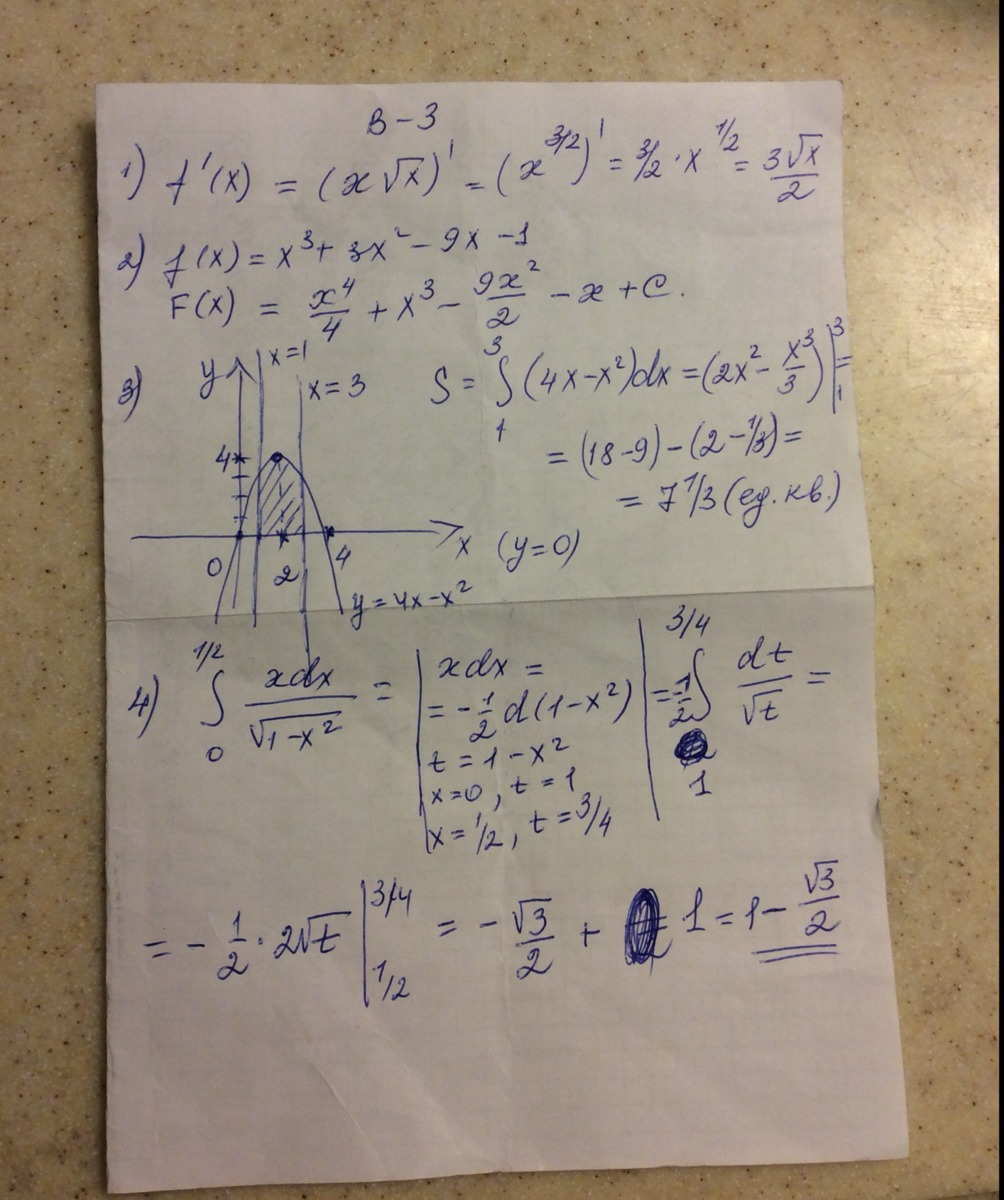 В – 3
1) f'(x) = (x√x)' = (x^(3/2))' = 3/2 · x^(1/2) = 3√x/2
2) f(x) = x³ + 3x² – 9x – 1
F(x) = x⁴/4 + x³ – 9x²/2 – x + C.
3) y x=1 x=3 4 0 2 4 x (y=0) y = 4x–x²
S = ∫₁³ (4x–x²)dx = (2x² – x³/3) |₁³ =
= (18–9) – (2–1/3) =
= 7 1/3 (ед. кв.)
4) ∫₀^(1/2) xdx/√(1–x²) = | xdx =
= –1/2 d(1–x²)
t = 1–x²
x=0, t=1
x=1/2, t=3/4 | = –1/2 ∫₁^(3/4) dt/√t =
= – 1/2 · 2√t |_(1/2)^(3/4) = – √3/2 + 1 = 1 – √3/2